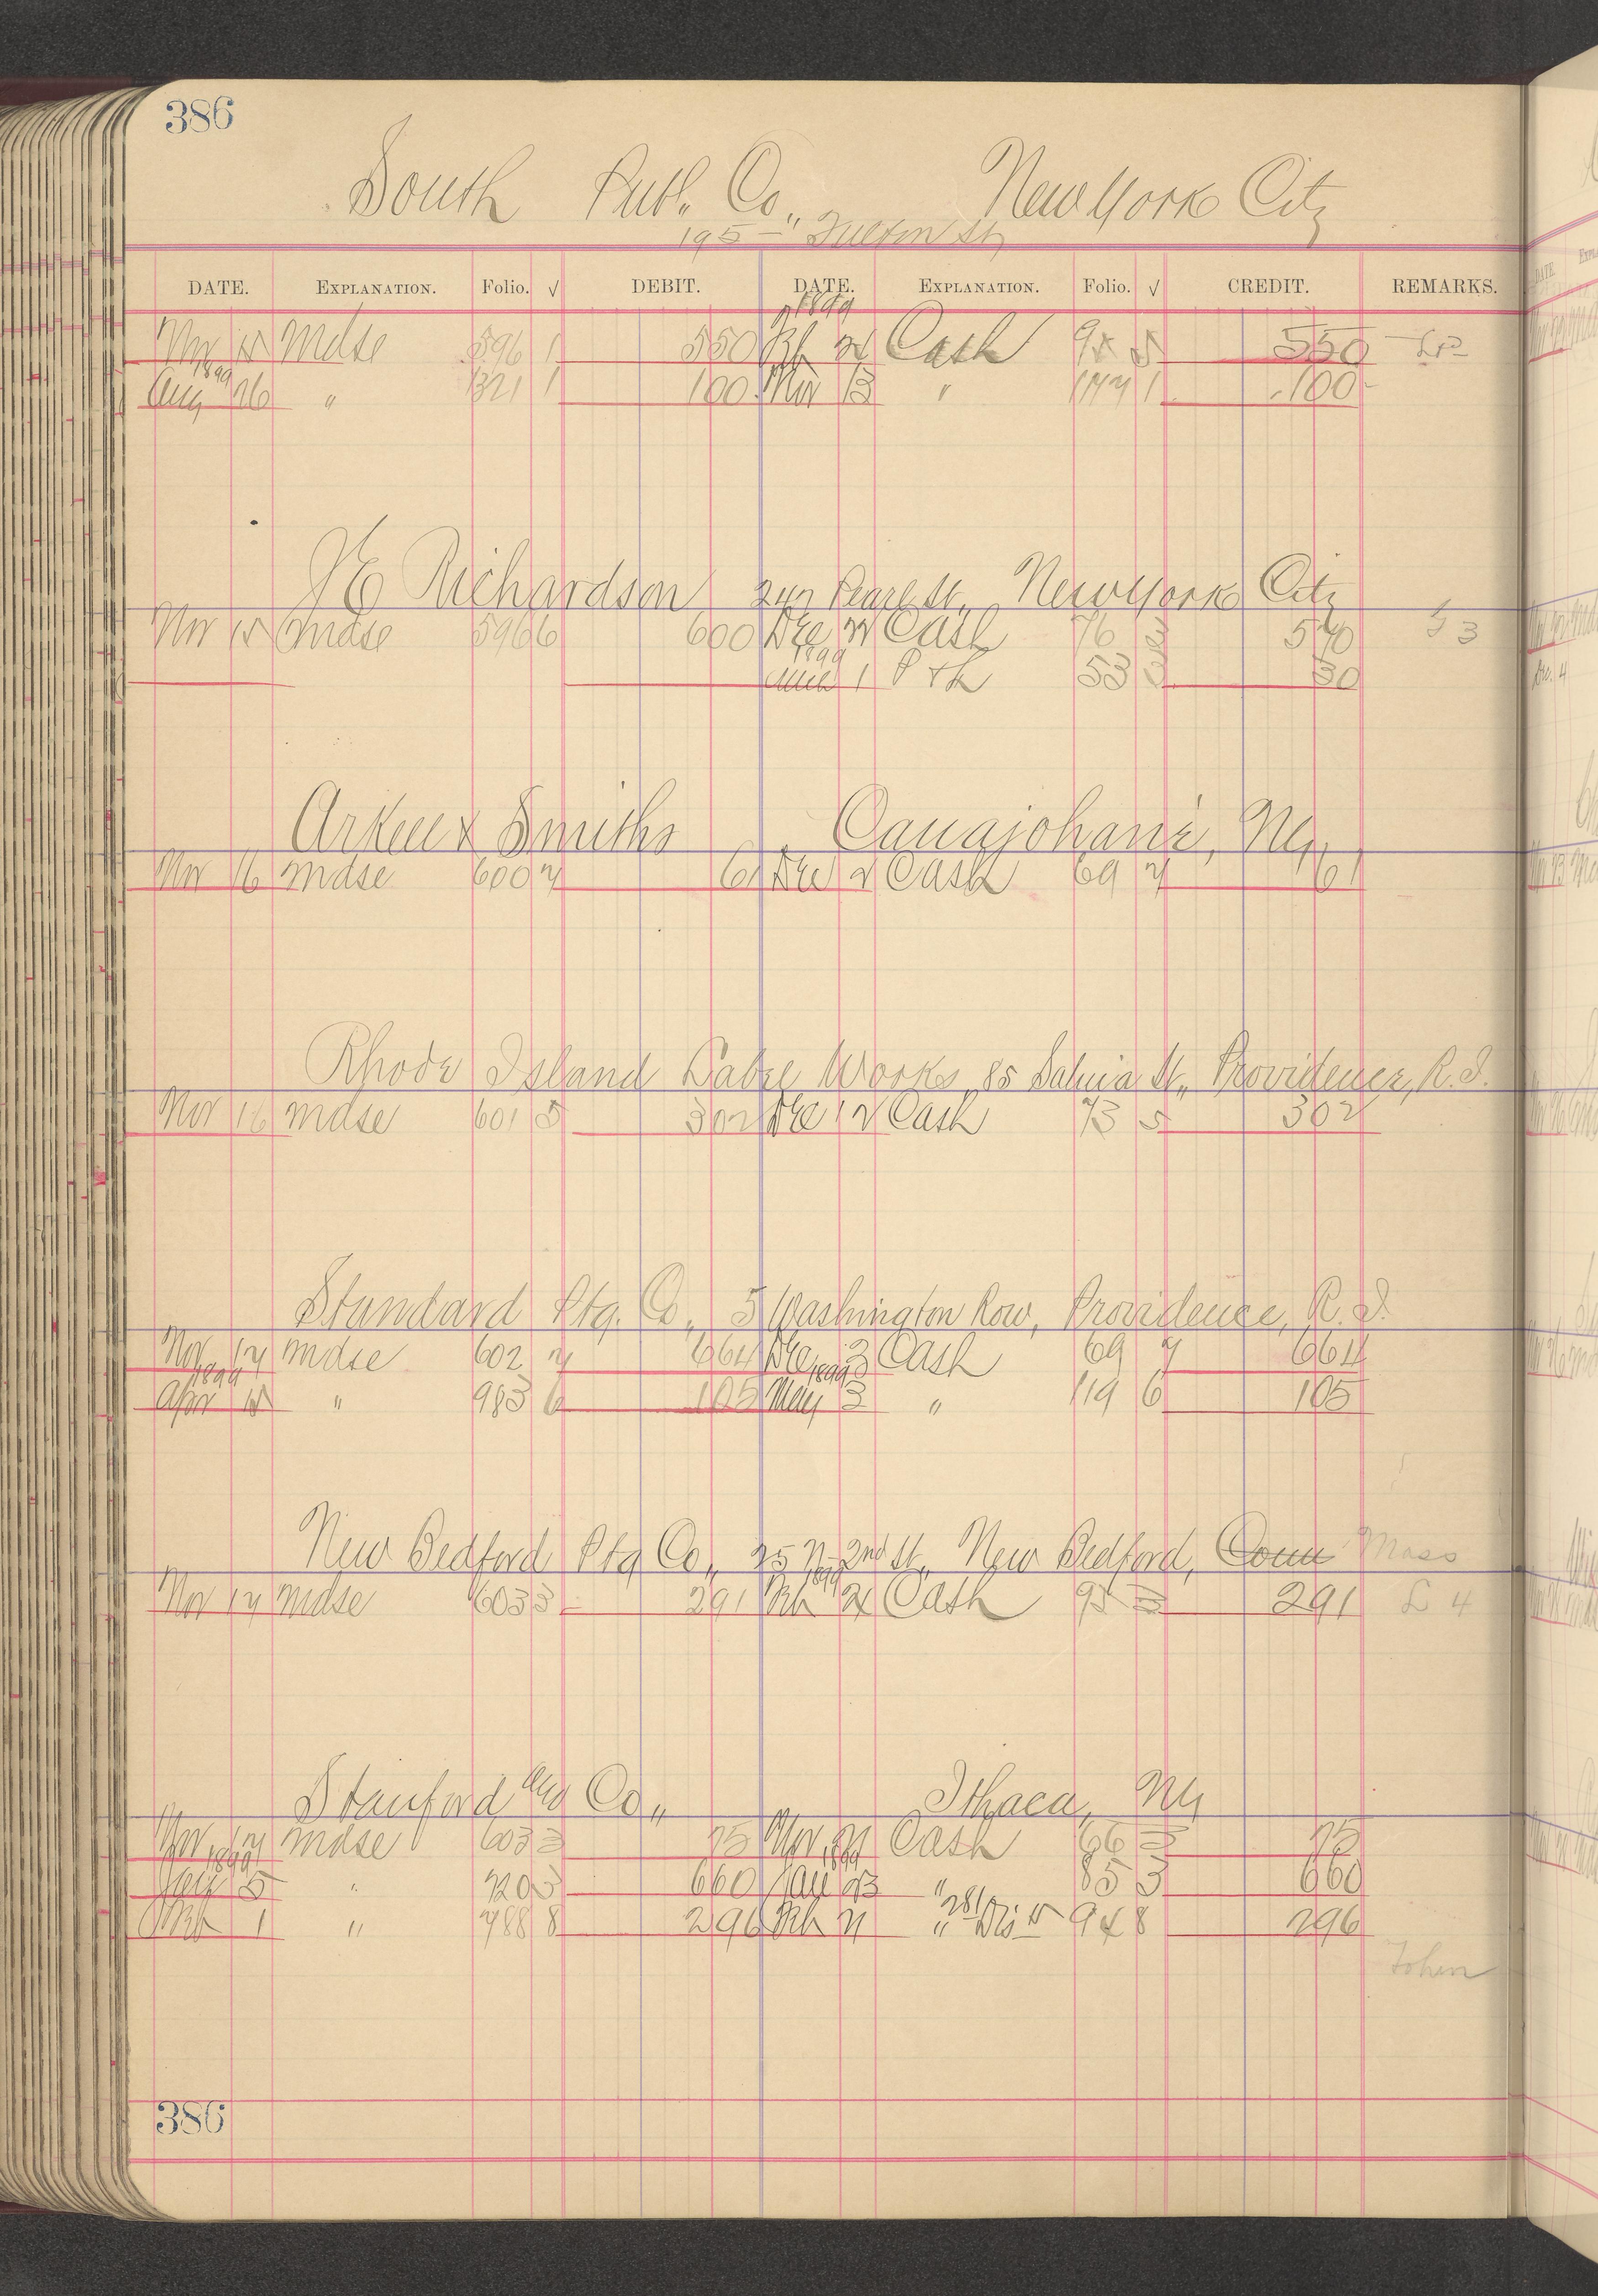 386
South Publ. Co., New York City
195 Fulton St
DATE. EXPLANATION. Folio. √ DEBIT. DATE. EXPLANATION. Folio. √ CREDIT. REMARKS.
1899
Nov 15 Mdse 596 1 550 Cash 5 550
1899
Aug 26 " 1321 1 100 Nov 13 " 177 1 100
J E Richardson 247 Pearl St., New York City
Nov 15 Mdse 596 6 600 Dec Cash 76 570 3
1899
1 P & L 53 30
Arkell & Smiths Canajoharie, Ny,
Nov 16 Mdse 600 7 61 Dec 2 Cash 69 7 61
Rhode Island Label Works 85 Sabin St., Providence, R.I.
Nov 16 Mdse 601 5 302 Dec 12 Cash 73 5 302
Standard Ptg. Co., 5 Washington Row, Providence, R.I.
Nov 17 Mdse 602 7 664 Dec 3 Cash 69 7 664
1899 1899
Apr 15 " 983 6 105 May 3 " 119 6 105
New Bedford Ptg Co., 25 N. 2nd St., New Bedford, Conn Mass
1899
Nov 17 Mdse 603 3 291 Cash 95 3 291 4
Stanford Co., Ithaca, Ny
Nov 17 Mdse 603 3 75 Nov 21 Cash 66 3 75
1899 1899
5 " 720 3 660 Jan 23 " 85 3 660
281
1 " 788 8 296 " Dis 15 94 8 296
386